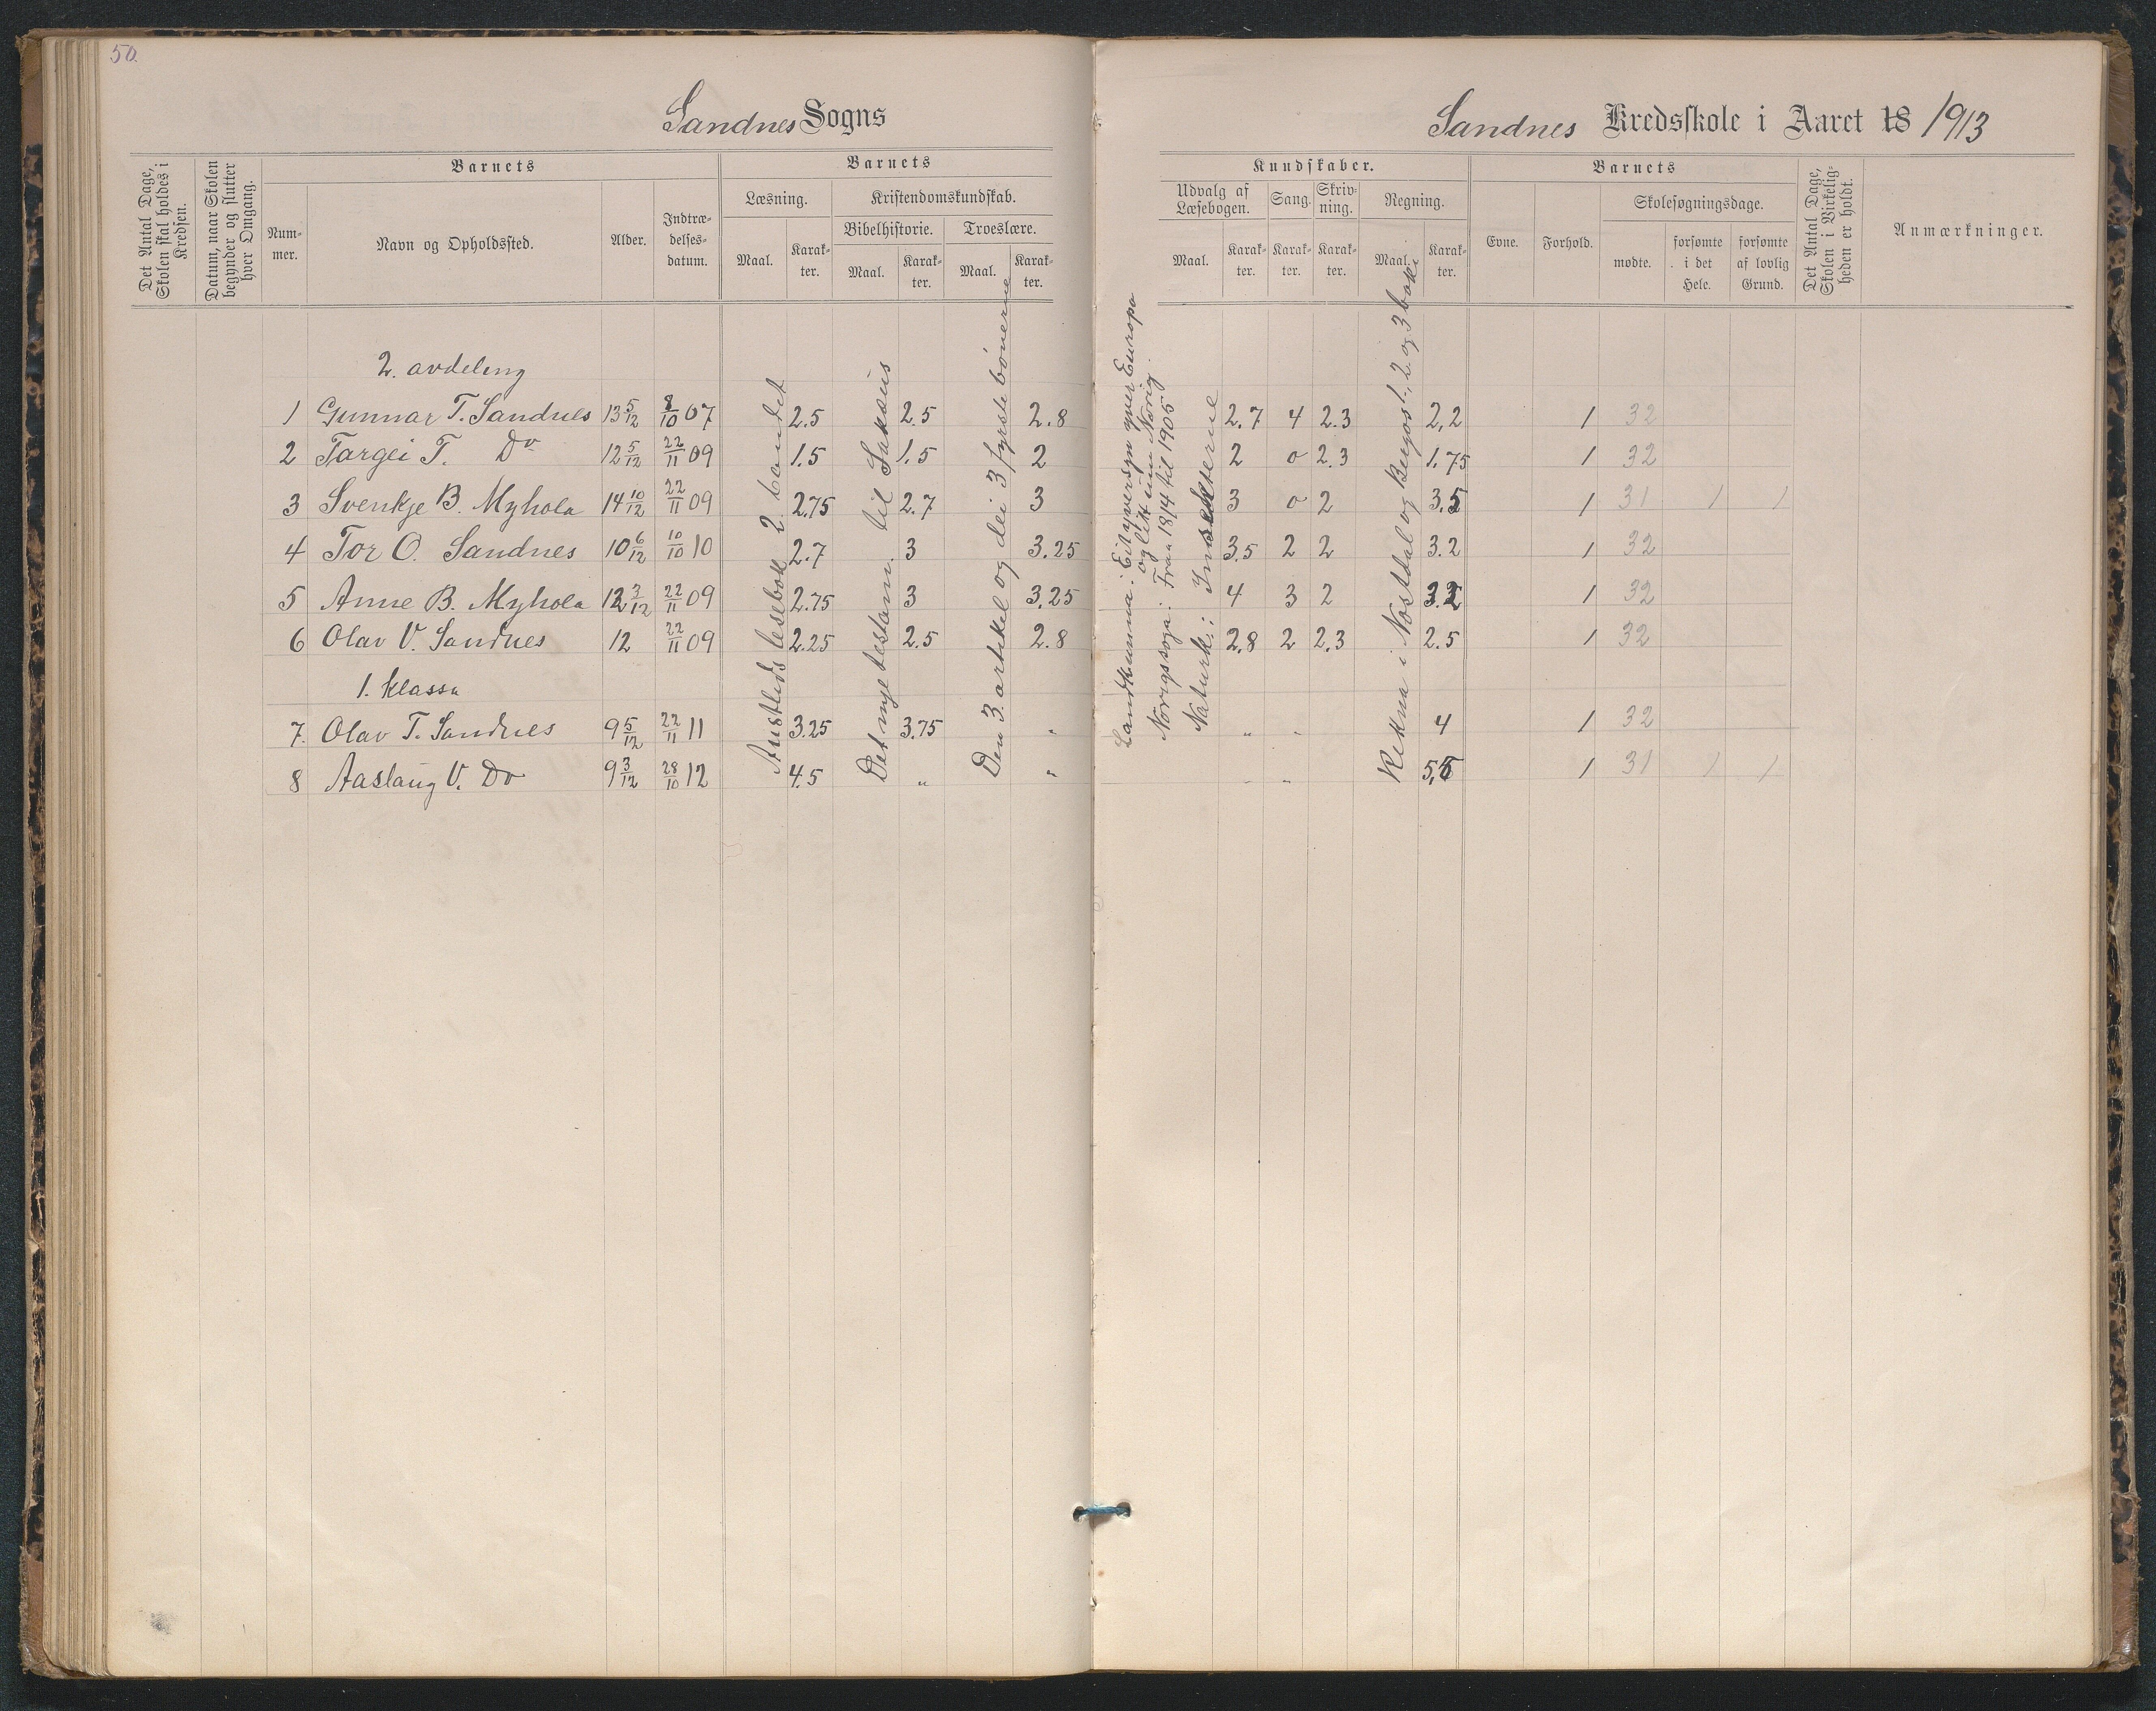 50.
Sandnes Sogns
Sandnes Kredsskole i Aaret 18 1913
Det Antal Dage, Skolen skal holdes i Kredsen.
Datum, naar Skolen begynder og slutter hver Omgang.
Barnets
Num-mer.
Navn og Opholdssted.
Alder.
Indtræ-delses-datum.
Barnets
Læsning.
Maal.
Karak-ter.
Kristendomskundskab.
Bibelhistorie.
Maal.
Karak-ter.
Troeslære.
Maal.
Karak-ter.
Kundskaber.
Udvalg af Læsebogen.
Maal.
Karak-ter.
Sang.
Karak-ter.
Skriv-ning.
Karak-ter.
Regning.
Maal.
Karak-ter.
Barnets
Evne.
Forhold.
Skolesøgningsdage.
mødte.
forsømte i det Hele.
forsømte af lovlig Grund.
Det Antal Dage, Skolen i Virkelig-heden er holdt.
Anmærkninger.
2. avdeling
1 Gunnar T. Sandnes 13 5/12 8/10 07 2.5 2.5 2.8 2.7 4 2.3 2,2 1 32
2 Targei T. Do 12 5/12 22/11 09 1.5 1.5 2 2 0 2.3 1.75 1 32
3 Svenkje B. Myhola 14 10/12 22/11 09 2.75 2.7 3 3 0 2 3.5 1 31 1 1
4 Tor O. Sandnes 10 6/12 10/10 10 2.7 3 3.25 3.5 2 2 3.2 1 32
5 Anne B. Myhola 12 3/12 22/11 09 2.75 3 3.25 4 3 2 3.2 1 32
6 Olav V. Sandnes 12 22/11 09 2.25 2.5 2.8 2.8 2 2.3 2.5 1 32
1. klassa
7. Olav T. Sandnes 9 5/12 22/11 11 3.25 3.75 " " " 4 1 32
8 Aaslaug V. Do 9 3/12 28/10 12 4.5 " " " " 5,5 1 31 1 1
Austlids lesebok 2. bandet
Det nye testam. til Saksens
Den 3. artikel og dei 3 fyrste bönerne
Landkunna: Eit yversyn yver Europa
og litt um Norig.
Norigssoga: Fraa 1814 til 1905
Naturk.: Insekterne
Rekna i Nøstdal og Bergos 1., 2. og 3 boki